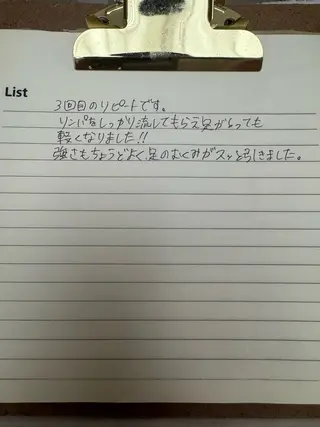 List
3回目のリピートです。
リンパをしっかり流してもらえ足がとっても
軽くなりました!!
強さもちょうどよく足のむくみがスッと引きました。